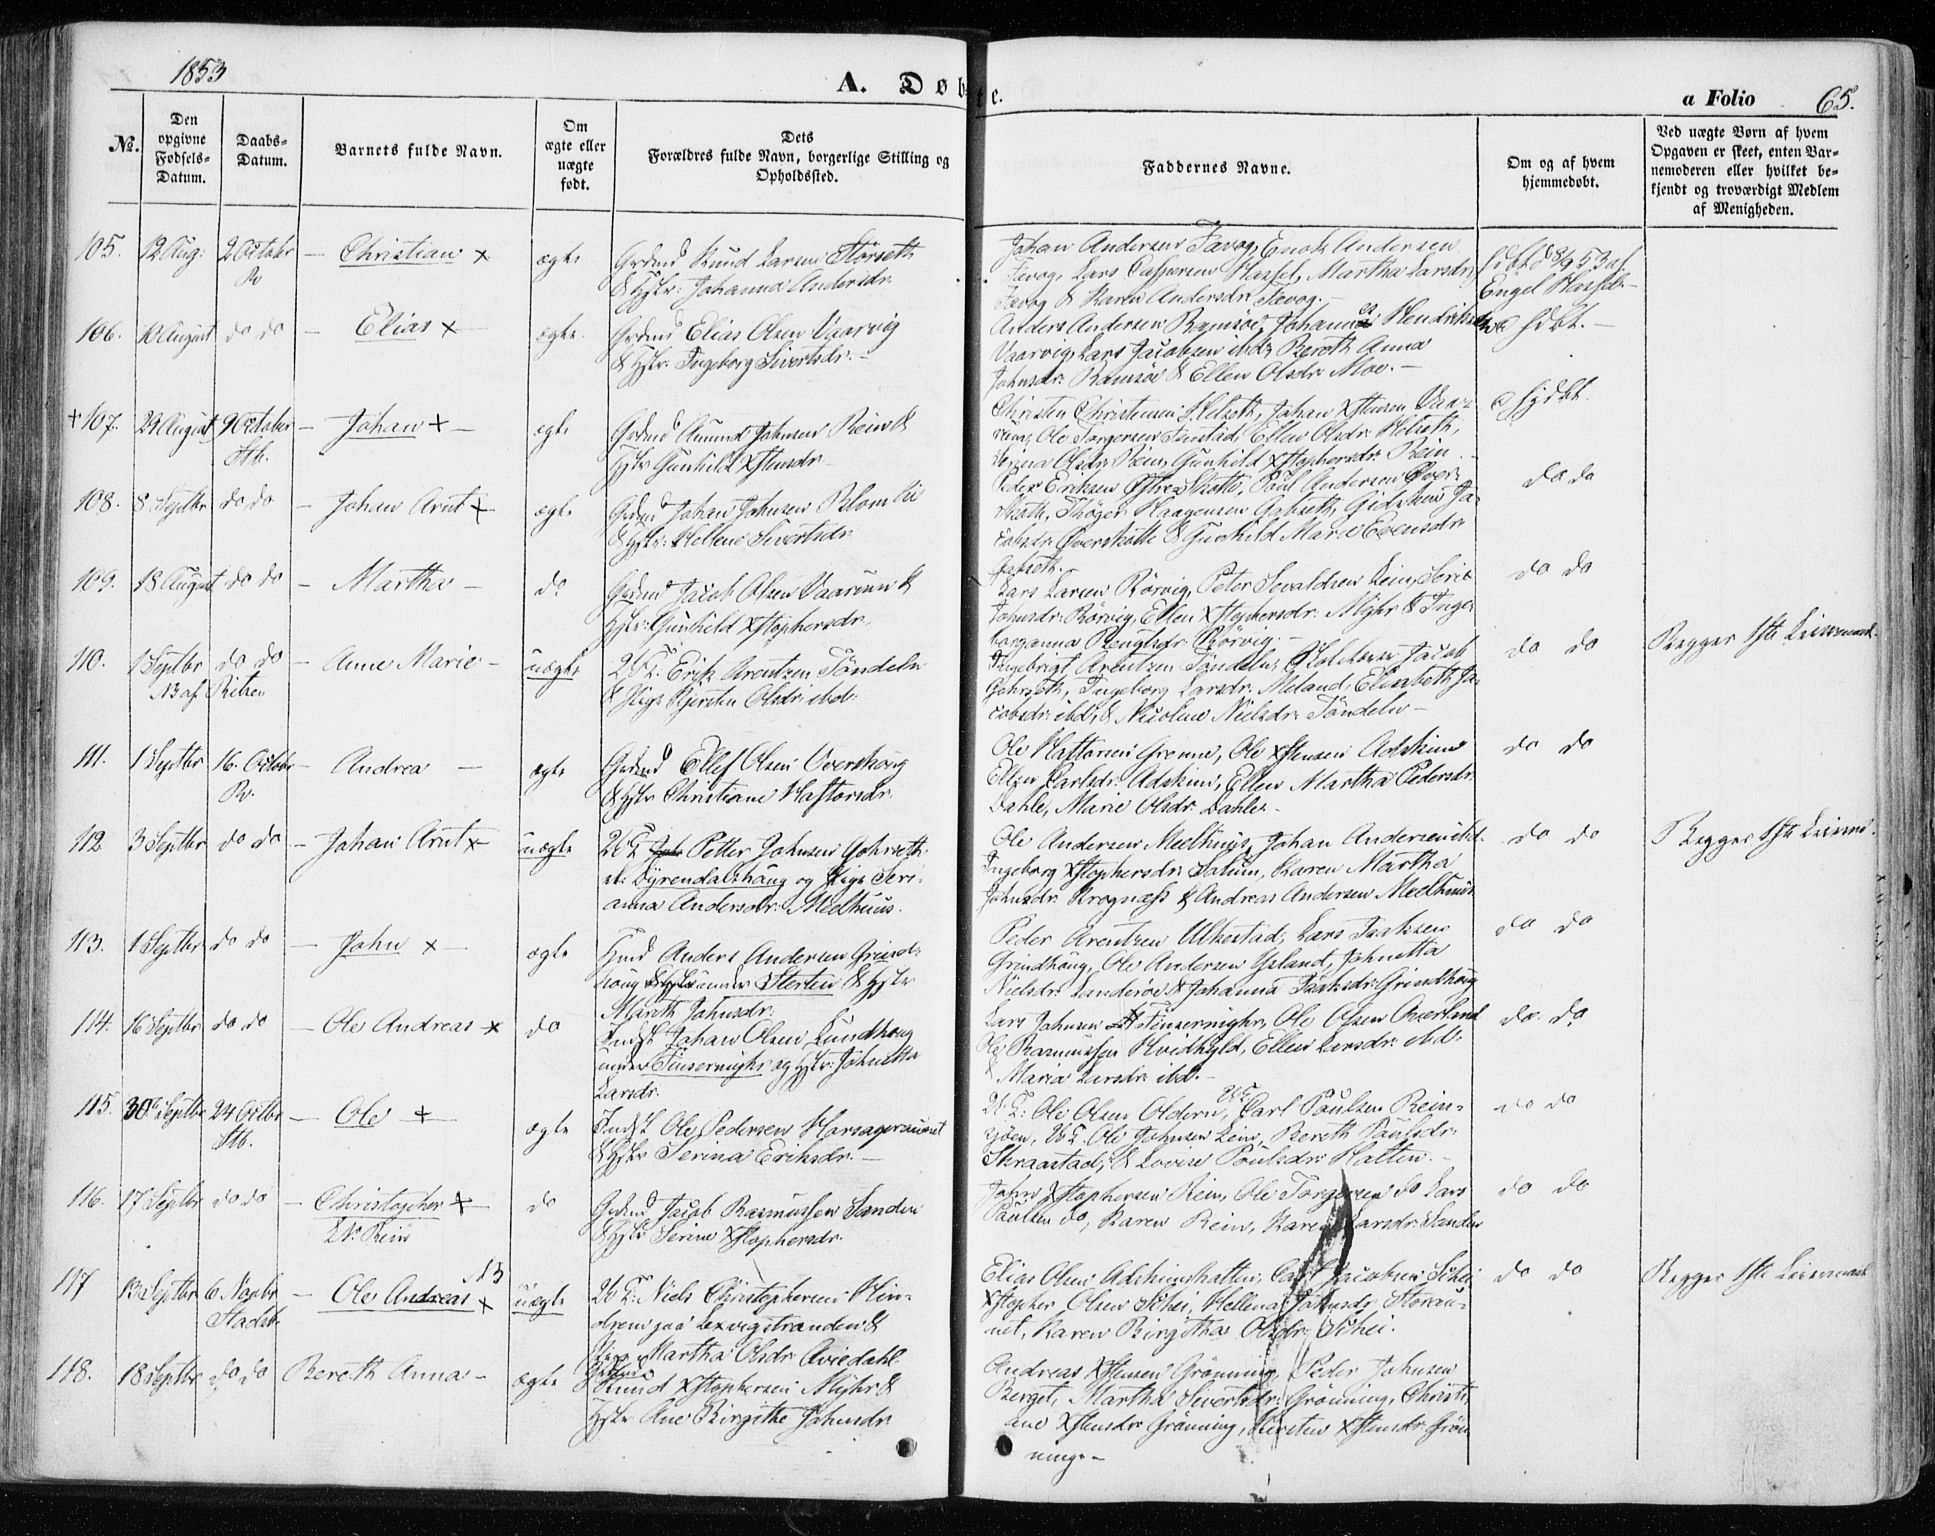 1853
A. Døbte.
a Folio 65.
No.
Den opgivne Fødsels-Datum.
Daabs-Datum.
Barnets fulde Navn.
Om ægte eller uægte født.
Dets Forældres fulde Navn, borgerlige Stilling og Opholdssted.
Faddernes Navne.
Om og af hvem hjemmedøbt.
Ved uægte Børn af hvem Opgaven er skeet, enten Barnemoderen eller hvilket bekjendt og troværdigt Medlem af Menigheden.
105. 12 Aug: 2 Octobr R – Christian x ægte
Grdmd Knud Larsen Störseth
& Hstr: Johanna Andersdr.
Johan Andersen Fævog, Enok Andersen
Fævog, Lars Caspersen Hassel, Martha Larsdr
Fævog & Karen Andersdr Fævog. –
Engel Hassel –
106. 10 August do do – Elias x ægte.
Grdmd Elias Olsen Vaarvig
& Hstr: Ingeborg Sivertsdr. –
Anders Andersen Ramsöe, Hendriks
Vaarvig, Lars Jacobsen ibd, Bereth Anna
Johnsdr. Ramsöe & Ellen Olsdr. Moe. –
hdbt. –
+ 107. 29 August 9 October Stb. – Johan + – ægte
Grdmd Amund Johnsen Rein &
Hstr Gunhild Xstensdr –
Christen Christensen Helseth, Johan Xstensen
Ole Torgersen Ellen Olsdr. Helseth,
Olsdr. Rein, Gunhild Xstophersdr. Rein.
108. 8 Septbr do do – Johan Arnt + ægte
Grdmd Johan Johnsen Blomlie
& Hstr: Hellene Sivertsdr.
Peder Eriksen Poul Andersen Over-
Haagensen Gabseth, Ja-
cobsdr. Overskotte & Gunhild Marie Evensdr.
Gabseth.
do do
109. 18 August do do – Martha – do
Grdmd Jacob Olsen Vaarum &
Hstr: Gunhild Xstophersdr.
Lars Larsen Rörvig, Peter Sevaldsen Lein,
Johnsdr. Rörvig, Ellen Xstophersdr. Myhr & Inge-
borganna Rörvig. –
do do
110. 1 Septbr do do – Anne Marie – uægte
NB af Ritsen
UbK: Erik Arentzen Töndeln
& Pige Kjersten Olsdr ibd.
Ingebrigt Arentzen Töndeln, Jacob
Ingeborg Larsdr. Meland, Elisabeth Ja-
cobsdr. ibd, & Nicoline Nielsdr. Töndeln –
do do
Begges 1ste Leiermaal.
111. 1 Septbr 16. Octobr R. – Andrea – ægte
Grdmd Ellef Olsen Overskoug
& Hstr Christiane Haftorsdr.
Ole Haftorsen Grenne, Ole Xstensen Adskim
Ellen Carlsdr. Adskim, Ellen Martha Pedersdr.
Dahle, Marie Olsdr. Dahle. –
do do
112 3 Septbr do do – Johan Arnt x uægte
UbK Petter Johnsen
Dyrendalshaug og Pige Seri-
anna Andersdr. Melhuus.
Ole Andersen Melhuus, Johan Andersen ibd.
Ingeborg Xstophersdr. Salum, Karen Martha
Johnsdr. Krognæss & Andreas Andersen Melhuus
do do
Begges 1ste Leierm.
113. 1 Septbr do do – John x – ægte
Hmd Anders Andersen Grind-
houg under Sterten & Hstr
Mareth Johnsdr.
Peder Arentzen Ulkestad, Lars Isaksen
Grindhoug, Ole Andersen Ysland, Johnetta
Nielsdr. Sanderöe & Johanna Isaksdr. Grindhoug
do do
114. 16 Septbr do do – Ole Andreas x do
Indst Johan Olsen Lundhoug
under og Hstr: Johnetta
Larsdr.
Lars Johnsen Ole Olsen Overland
Ole Rasmussen Hvidhyld, Ellen Larsdr. ibd.
& Maria Larsdr. ibd. –
do do
115. 30te Septbr 24 Octbr Stb. – Ole + ægte
Indst Ole Pedersen
& Hstr Serina Eriksdr. –
UbK: Ole Olsen Oldern, UbK Carl Paulsen Rein-
sjöen, UbK. Ole Johnsen Lein, Bereth Paulsdr.
Skraastad, & Lovise Poulsdr. Hatten. –
do do
116. 17 Septbr do do – Christopher + do
Grdmd Jacob Rasmussen Sanden
& Hstr Serine Xstophersdr.
John Xstophersen Rein, Ole Torgersen do Lars
Paulsen do, Karen Rein, Karen Larsdr. Sanden
do do
117 13 Septbr 6 Novbr Stadsb. – Ole Andreas x uægte
UbK: Niels Christophersen Hin-
drem paa Lexvigstranden &
Pige Martha Olsdr. Aviedahl
Elias Olsen Adskimshatten, Carl Jacobsen Schei
Xstopher Olsen Schei, Hellena Johnsdr.
Karen Birgitha Olsdr. Schei.
do do
Begges 1ste Leiermaal
118. 18 Septbr do do Bereth Anna – ægte
Knud Xstophersen Myhr &
Hstr Ane Birgithe Johnsdr.
Andreas Xstensen Grönning, Peder Johnsen
Berget, Martha Sivertsdr. Grönning, Christi-
ane Xstensdr Grönning, Kirsten Xstensdr Grön-
ning. –